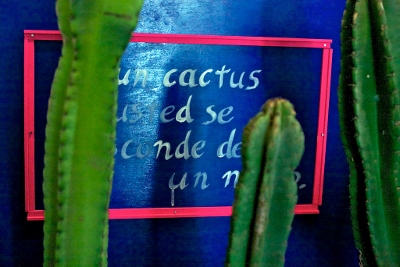 un cactus
usted se
sconde de
un n